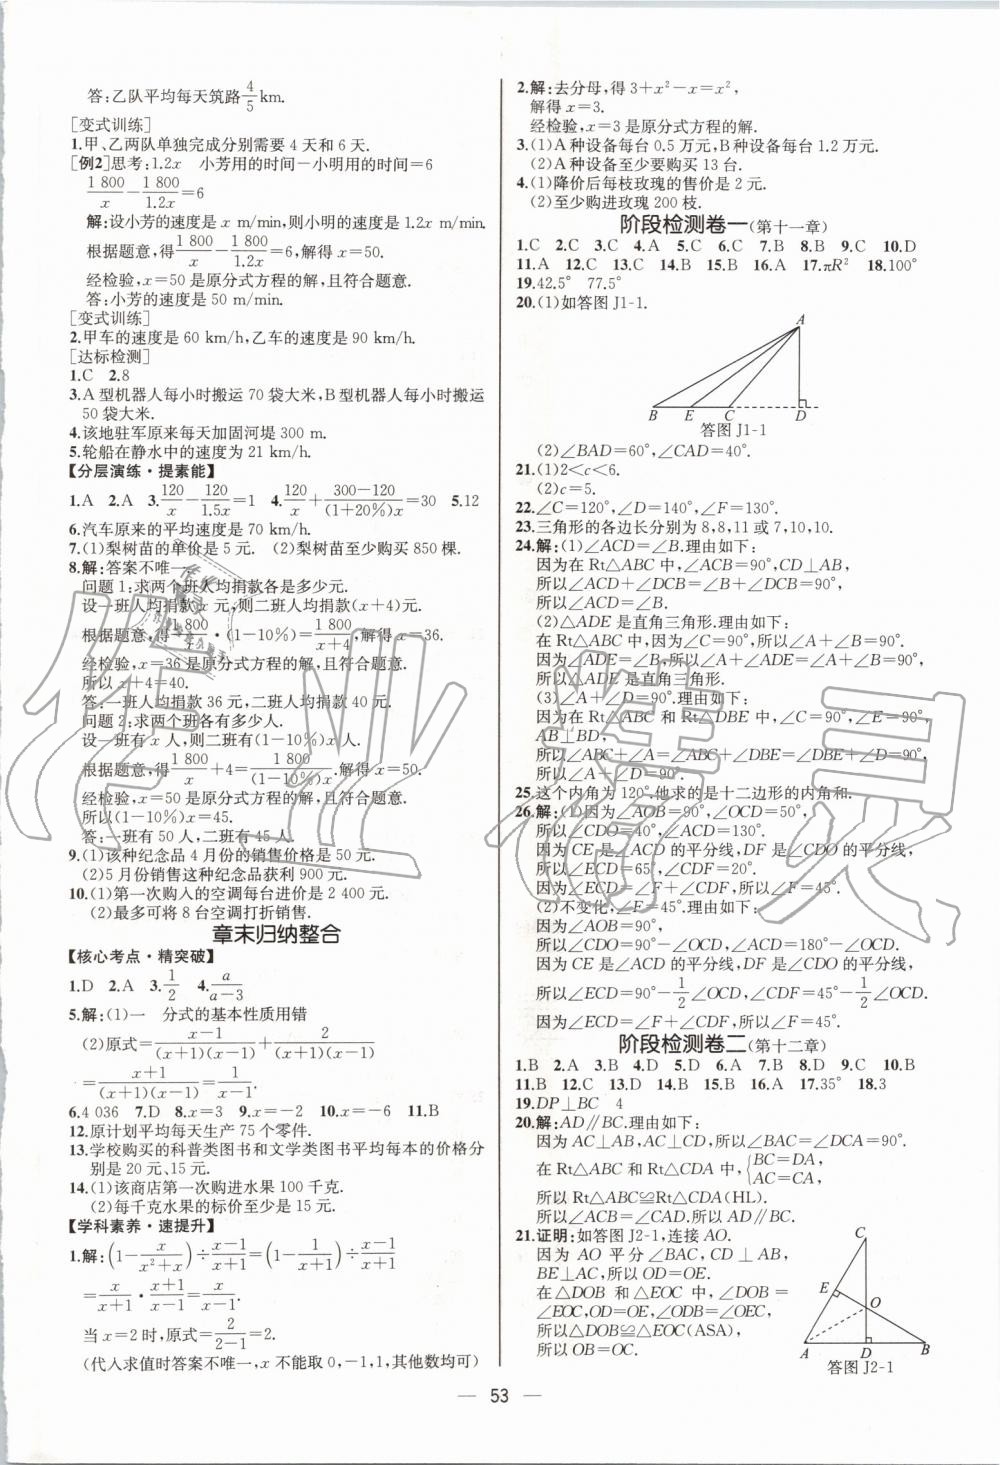 答:乙队平均每天筑路4/5 km.
[变式训练]
1.甲、乙两队单独完成分别需要 4 天和 6 天.
[例2]思考:1.2x 小芳用的时间-小明用的时间=6
1 800/x-1 800/1.2x=6
解:设小芳的速度是 x m/min,则小明的速度是 1.2x m/min.
根据题意,得1 800/x-1 800/1.2x=6,解得 x=50.
经检验,x=50 是原分式方程的解,且符合题意.
答:小芳的速度是 50 m/min.
[变式训练]
2.甲车的速度是 60 km/h,乙车的速度是 90 km/h.
[达标检测]
1.C 2.8
3.A 型机器人每小时搬运 70 袋大米,B 型机器人每小时搬运
50 袋大米.
4.该地驻军原来每天加固河堤 300 m.
5.轮船在静水中的速度为 21 km/h.
【分层演练·提素能】
1.A 2.A 3.120/x-120/1.5x=1 4.120/x+(300-120)/((1+20%)x)=30 5.12
6.汽车原来的平均速度是 70 km/h.
7.(1)梨树苗的单价是 5 元. (2)梨树苗至少购买 850 棵.
8.解:答案不唯一
问题 1:求两个班人均捐款各是多少元.
设一班人均捐款 x 元,则二班人均捐款(x+4)元.
根据题意,得1 800/x·(1-10%)=1 800/(x+4),解得 x=36.
经检验,x=36 是原分式方程的解,且符合题意.
所以 x+4=40.
答:一班人均捐款 36 元,二班人均捐款 40 元.
问题 2:求两个班各有多少人.
设一班有 x 人,则二班有(1-10%)x 人.
根据题意,得1 800/x+4=1 800/((1-10%)x).解得 x=50.
经检验,x=50 是原分式方程的解,且符合题意.
所以(1-10%)x=45.
答:一班有 50 人,二班有 45 人.
9.(1)该种纪念品 4 月份的销售价格是 50 元.
(2)5 月份销售这种纪念品获利 900 元.
10.(1)第一次购入的空调每台进价是 2 400 元.
(2)最多可将 8 台空调打折销售.
章末归纳整合
【核心考点·精突破】
1.D 2.A 3.1/2 4.a/(a-3)
5.解:(1)一 分式的基本性质用错
(2)原式=(x-1)/((x+1)(x-1))+2/((x+1)(x-1))
=(x+1)/((x+1)(x-1))=1/(x-1).
6.4 036 7.D 8.x=3 9.x=-2 10.x=-6 11.B
12.原计划平均每天生产 75 个零件.
13.学校购买的科普类图书和文学类图书平均每本的价格分
别是 20 元、15 元.
14.(1)该商店第一次购进水果 100 千克.
(2)每千克水果的标价至少是 15 元.
【学科素养·速提升】
1.解:(1-x/(x²+x))÷(x-1)/(x+1)=(1-1/(x+1))÷(x-1)/(x+1)
=x/(x+1)·(x+1)/(x-1)=x/(x-1).
当 x=2 时,原式=2/(2-1)=2.
(代入求值时答案不唯一,x 不能取 0,-1,1,其他数均可)
2.解:去分母,得 3+x²-x=x²,
解得 x=3.
经检验,x=3 是原分式方程的解.
3.(1)A 种设备每台 0.5 万元,B 种设备每台 1.2 万元.
(2)A 种设备至少要购买 13 台.
4.(1)降价后每枝玫瑰的售价是 2 元.
(2)至少购进玫瑰 200 枝.
阶段检测卷一(第十一章)
1.C 2.C 3.C 4.A 5.C 6.C 7.B 8.B 9.C 10.D
11.A 12.C 13.C 14.B 15.B 16.A 17.πR² 18.100°
19.42.5° 77.5°
20.(1)如答图J1-1.
A
B E C D
答图 J1-1
(2)∠BAD=60°,∠CAD=40°.
21.(1)2<c<6.
(2)c=5.
22.∠C=120°,∠D=140°,∠F=130°.
23.三角形的各边长分别为 8,8,11 或 7,10,10.
24.解:(1)∠ACD=∠B.理由如下:
因为在 Rt△ABC 中,∠ACB=90°,CD⊥AB,
所以∠ACD+∠DCB=∠B+∠DCB=90°.
所以∠ACD=∠B.
(2)△ADE 是直角三角形.理由如下:
在 Rt△ABC 中,因为∠C=90°,所以∠A+∠B=90°.
因为∠ADE=∠B,所以∠A+∠ADE=∠A+∠B=90°.
所以△ADE 是直角三角形.
(3)∠A+∠D=90°.理由如下:
因为在 Rt△ABC 和 Rt△DBE 中,∠C=90°,∠E=90°,
AB⊥BD,
所以∠ABC+∠A=∠ABC+∠DBE=∠DBE+∠D=90°.
所以∠A+∠D=90°.
25.这个内角为 120°,他求的是十二边形的内角和.
26.解:(1)因为∠AOB=90°,∠OCD=50°,
所以∠CDO=40°,∠ACD=130°.
因为 CE 是∠ACD 的平分线,DF 是∠CDO 的平分线,
所以∠ECD=65°,∠CDF=20°.
因为∠ECD=∠F+∠CDF,所以∠F=45°.
(2)不变化,∠F=45°.理由如下:
因为∠AOB=90°,
所以∠CDO=90°-∠OCD,∠ACD=180°-∠OCD.
因为 CE 是∠ACD 的平分线,DF 是∠CDO 的平分线,
所以∠ECD=90°-1/2∠OCD,∠CDF=45°-1/2∠OCD.
因为∠ECD=∠F+∠CDF,所以∠F=45°.
阶段检测卷二(第十二章)
1.B 2.A 3.B 4.D 5.D 6.A 7.B 8.D 9.C 10.B
11.B 12.C 13.D 14.B 15.B 16.A 17.35° 18.3
19.DP⊥BC 4
20.解:AD∥BC.理由如下:
因为 AC⊥AB,AC⊥CD,所以∠BAC=∠DCA=90°.
在 Rt△ABC 和 Rt△CDA 中,{BC=DA,
AC=CA,
所以 Rt△ABC≌Rt△CDA(HL).
所以∠ACB=∠CAD.所以 AD∥BC.
21.证明:如答图 J2-1,连接 AO.
因为 AO 平分∠BAC,CD⊥AB,
BE⊥AC,所以 OD=OE.
在△DOB 和△EOC 中,∠DOB=
∠EOC,OD=OE,∠ODB=∠OEC,
所以△DOB≌△EOC(ASA).
所以 OB=OC.
C
E
O
A D B
答图 J2-1
— 53 —
作业精灵